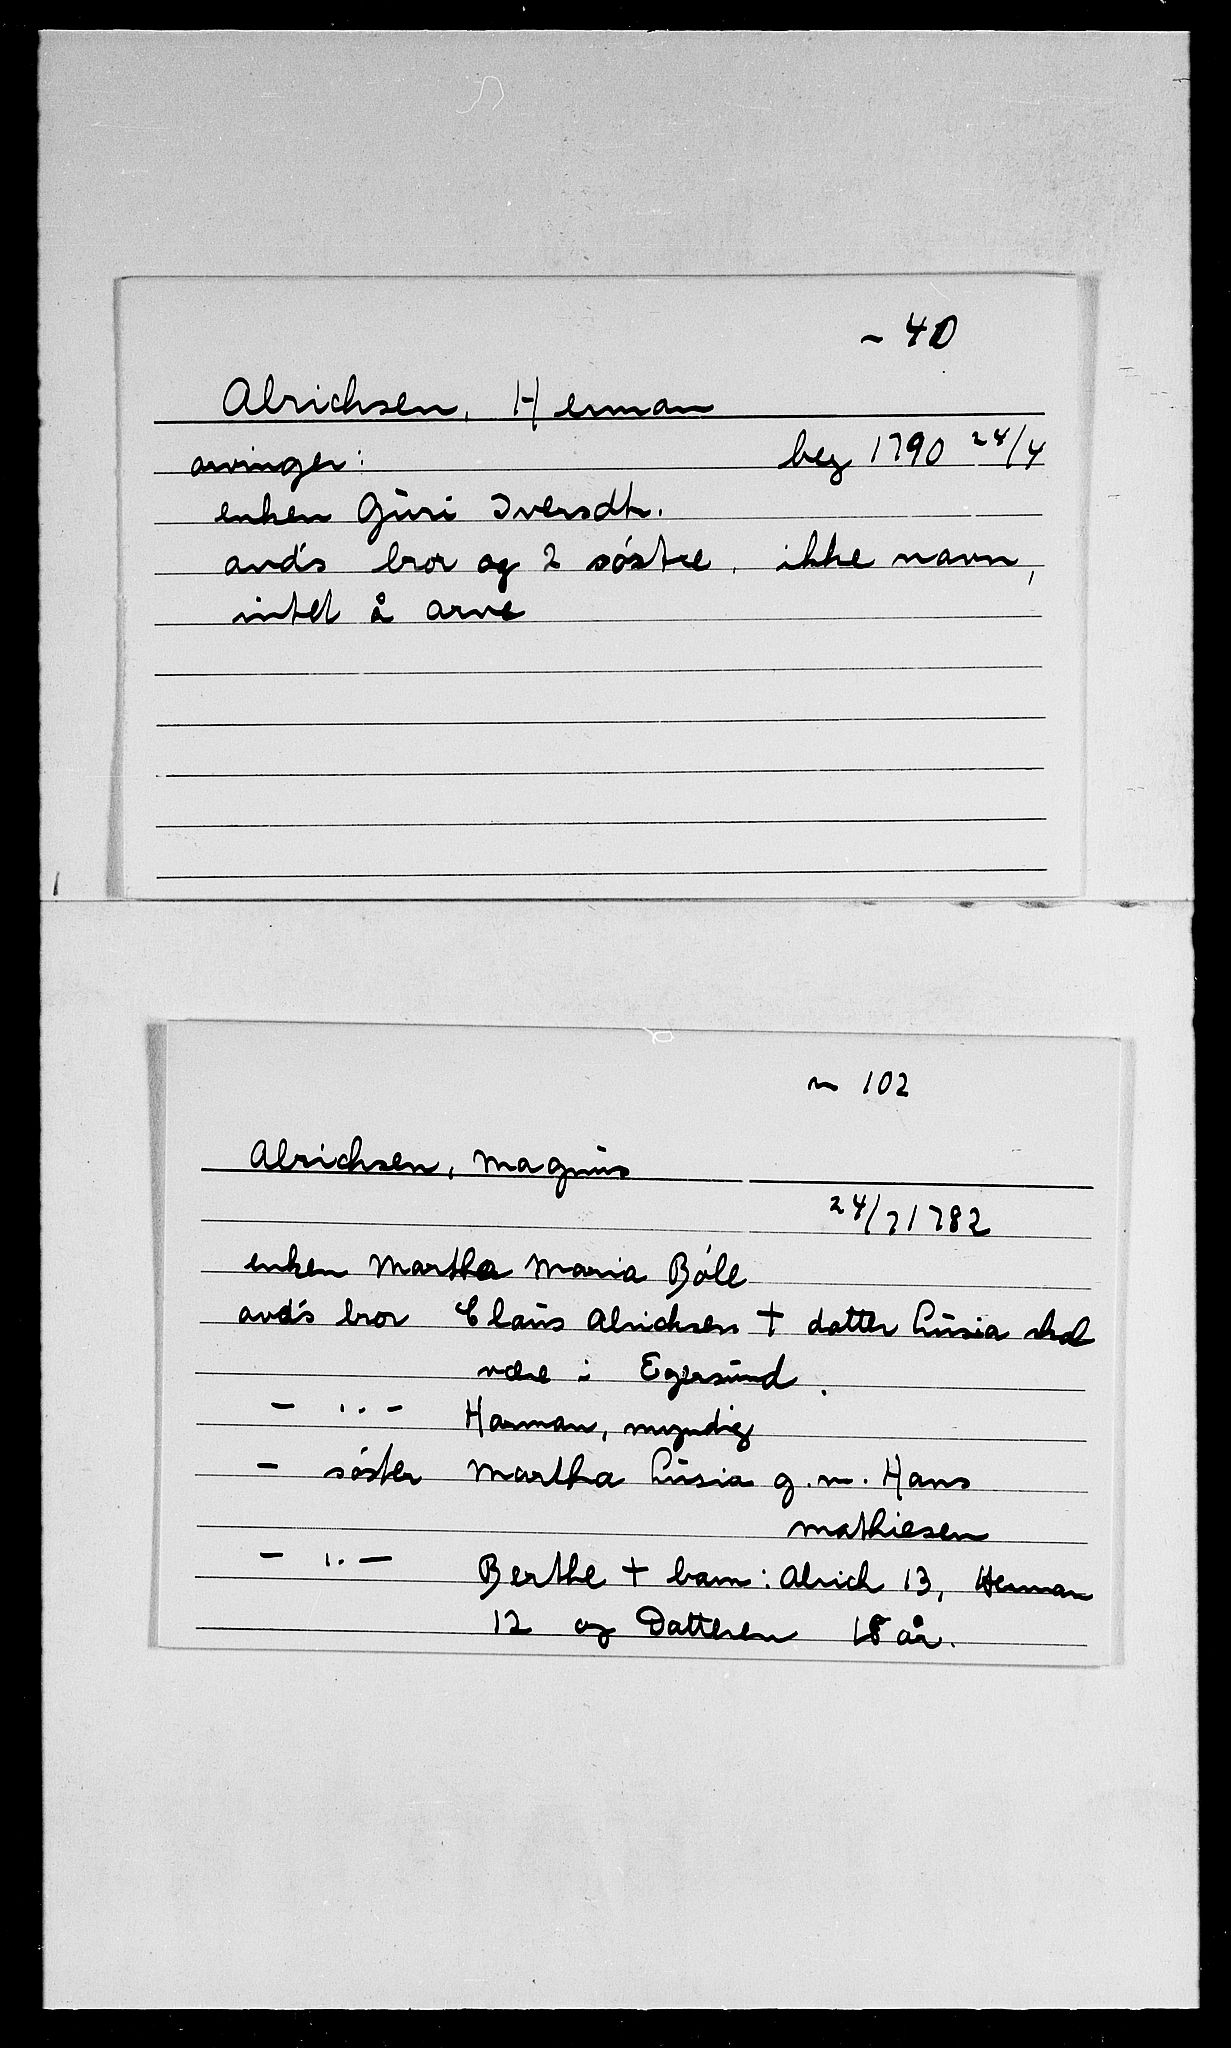 ~ 40
Alrichsen, Herman
arvinger: beg 1790 24/4
enken Gûri Iversdtr.
avd's bror og 2 søstre. ikke navn,
intet å arve
~ 102
Alrichsen, Magnûs
24/7 1782
enken Martha Maria Bôle
avd's bror Claûs Alrichsen † datter Lûsia skal
være i Egersûnd.
- " - Harman, myndig
- søster Martha Lûsia g.m. Hans
Mathiesen
- " - Berthe † barn: Alrich 13, Herman
12 og Datteren 18 år.